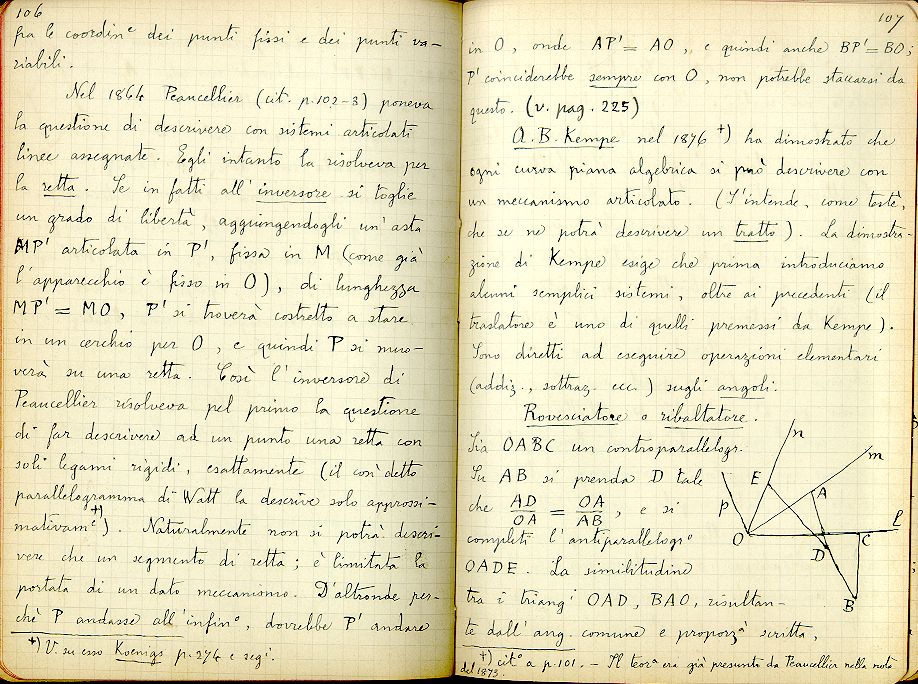 106
fra le coordin^e dei punti fissi e dei punti va-
riabili.
Nel 1864 Peaucellier (cit. p. 102-3) poneva
la questione di descrivere con sistemi articolati
linee assegnate. Egli intanto la risolveva per
la retta. Se in fatti all'inversore si toglie
un grado di libertà, aggiungendogli un'asta
MP' articolata in P', fissa in M (come già
l'apparecchio è fisso in O), di lunghezza
MP' = MO, P' si troverà costretto a stare
in un cerchio per O, e quindi P si muo-
verà su una retta. Così l'inversore di
Peaucellier risolveva pel primo la questione
di far descrivere ad un punto una retta con
soli legami rigidi, esattamente (il così detto
parallelogramma di Watt la descrive solo approssi-
mativam^e +)). Naturalmente non si potrà descri-
vere che un segmento di retta; è limitata la
portata di un dato meccanismo. D'altronde per-
chè P andasse all'infin^o, dovrebbe P' andare
+) V. su esso Koenigs p. 274 e seg^i.
107
in O, onde AP' = AO, e quindi anche BP' = BO;
P' coinciderebbe sempre con O, non potrebbe staccarsi da
questo. (v. pag. 225)
A. B. Kempe nel 1876 +) ha dimostrato che
ogni curva piana algebrica si può descrivere con
un meccanismo articolato. (S'intende, come testè,
che se ne potrà descrivere un tratto). La dimostra-
zione di Kempe esige che prima introduciamo
alcuni semplici sistemi, oltre ai precedenti (il
traslatore è uno di quelli premessi da Kempe).
Sono diretti ad eseguire operazioni elementari
(addiz., sottraz. ecc.) sugli angoli.
Rovesciatore o ribaltatore.
Sia OABC un controparallelogr.
Su AB si prenda D tale
che AD/OA = OA/AB, e si
completi l'antiparallelogr^o
OADE. La similitudine
tra i triang^i OAD, BAO, risultan-
te dall'ang. comune e proporz^a scritta,
n
m
E
A
p
O
l
D
C
B
+) cit^o a p. 101. – Il teor^a era già presunto da Peaucellier nella nota
del 1873.